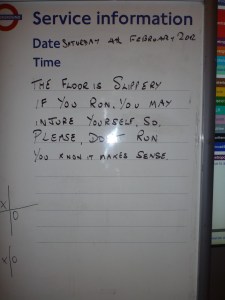 Service information
Date SATURDAY 4th FEBRUARY 2012
Time
THE FLOOR IS SLIPPERY
IF YOU RUN, YOU MAY
INJURE YOURSELF. SO,
PLEASE, DON'T RUN
YOU KNOW IT MAKES SENSE.
X O
X O